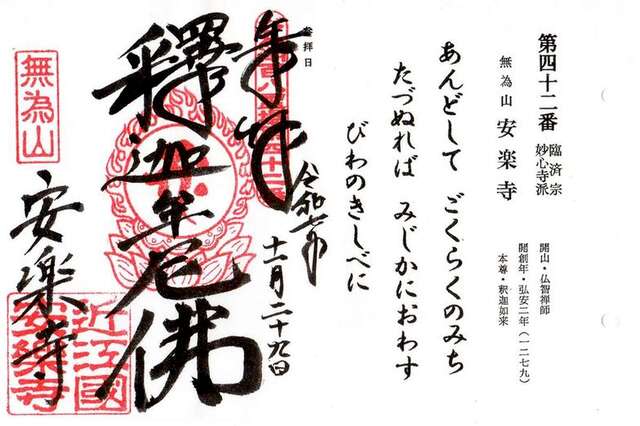 第四十二番 臨済宗
妙心寺派
無為山 安楽寺
開山・仏智禅師
開創年・弘安二年(一二七九)
本尊・釈迦如来
あんどして ごくらくのみち
たづぬれば みじかにおわす
びわのきしべに
参拝日
奉拝
令和
十一月二十九日
釋迦牟尼佛
無為山
安楽寺
近江國
安樂寺